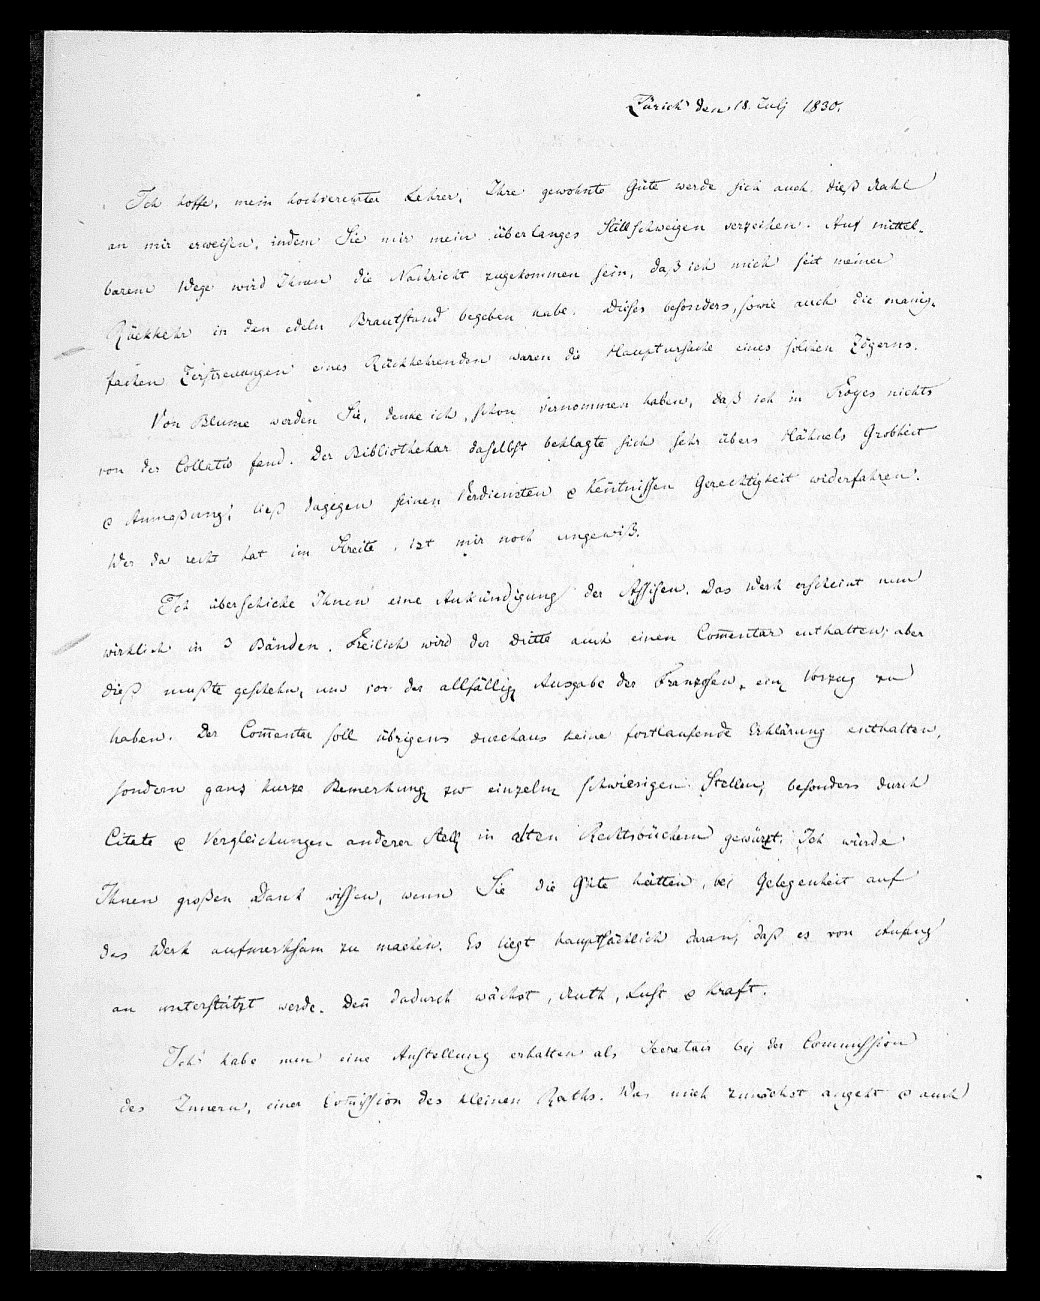 Zürich den 18. July 1830.
Ich hoffe, mein hochverehrter Lehrer, Ihre gewohnte Güte werde sich auch dieß Mahl
an mir erweisen, indem Sie mir mein überlanges Stillschweigen verzeihen. Auf mittel-
barem Wege wird Ihnen die Nachricht zugekommen sein, daß ich mich seit meiner
Rückkehr in den edeln Brautstand begeben habe. Dieses besonders, sowie auch die manig-
fachen Zerstreuungen eines Rückkehrenden waren die Hauptursache eines solchen Zögerns.
Von Blume werden Sie, denke ich, schon vernommen haben, daß ich in Troyes nichts
von der Collatio fand. Der Bibliothekar daselbst beklagte sich sehr übers Hähnels Grobheit
& Anmaßung, ließ dagegen seinen Verdiensten & Keñtnissen Gerechtigkeit widerfahren.
Wer da recht hat im Streite, ist mir noch ungewiß.
Ich überschicke Ihnen eine Ankündigung der Assisen. Das Werk erscheint nun
wirklich in 3 Bänden. Freilich wird der dritte auch einen Com̃entar enthalten; aber
dieß mußte geschehn, um vor der allfällig Ausgabe der Franzosen, ein Vorzug zu
haben. Der Com̃entar soll übrigens durchaus keine fortlaufende Erklärung enthalten,
sondern ganz kurze Bemerkung zu einzeln schwierigen Stellen, besonders durch
Citate & Vergleichungen anderer Stell in alten Rechtsbüchern gewürzt. Ich würde
Ihnen großen Dank wissen, wenn Sie die Güte hätten, bei Gelegenheit auf
das Werk aufmerksam zu machen. Es liegt hauptsächlich daran, daß es von Anfang
an unterstützt werde. Deñ dadurch wächst, Muth, Lust & Kraft.
Ich habe nun eine Anstellung erhalten als Secretair bej der Commission
des Innern, einer Com̃ission des kleinen Raths. Was mich zunächst angeht & auch